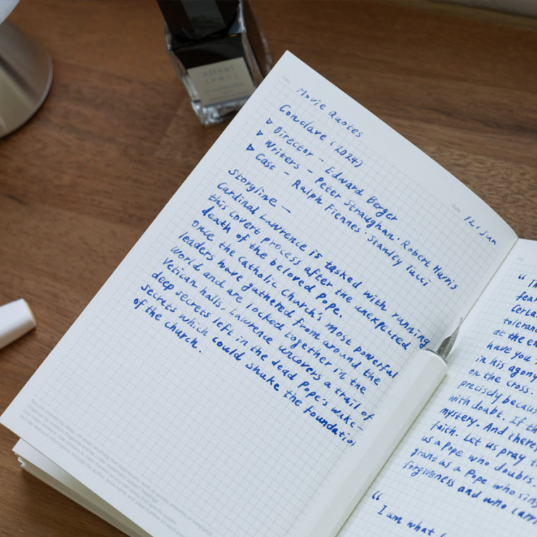 Movie Quotes
12. Jan
Conclave (2024)
▷ Director – Edward Berger
▷ Writers – Peter Straughan. Robert Harris
▷ Case – Ralph Fiennes. Stanley Tucci
Storyline –
Cardinal Lawrence is tasked with running
this covert process after the unexpected
death of the beloved Pope.
Once the Catholic Church's most powerful
leaders have gathered from around the
world and are locked together in the
Vatican halls, Lawrence uncovers a trail of
deep secrets left in the dead Pope's wake –
secrets which could shake the foundation
of the Church.
have you
in his agony
on the cross.
precisely becaus
with doubt. If th
mystery. And there
faith. Let us pray t
us a Pope who doubts.
grant us a Pope who sins
forgiveness and who carri
"I am what